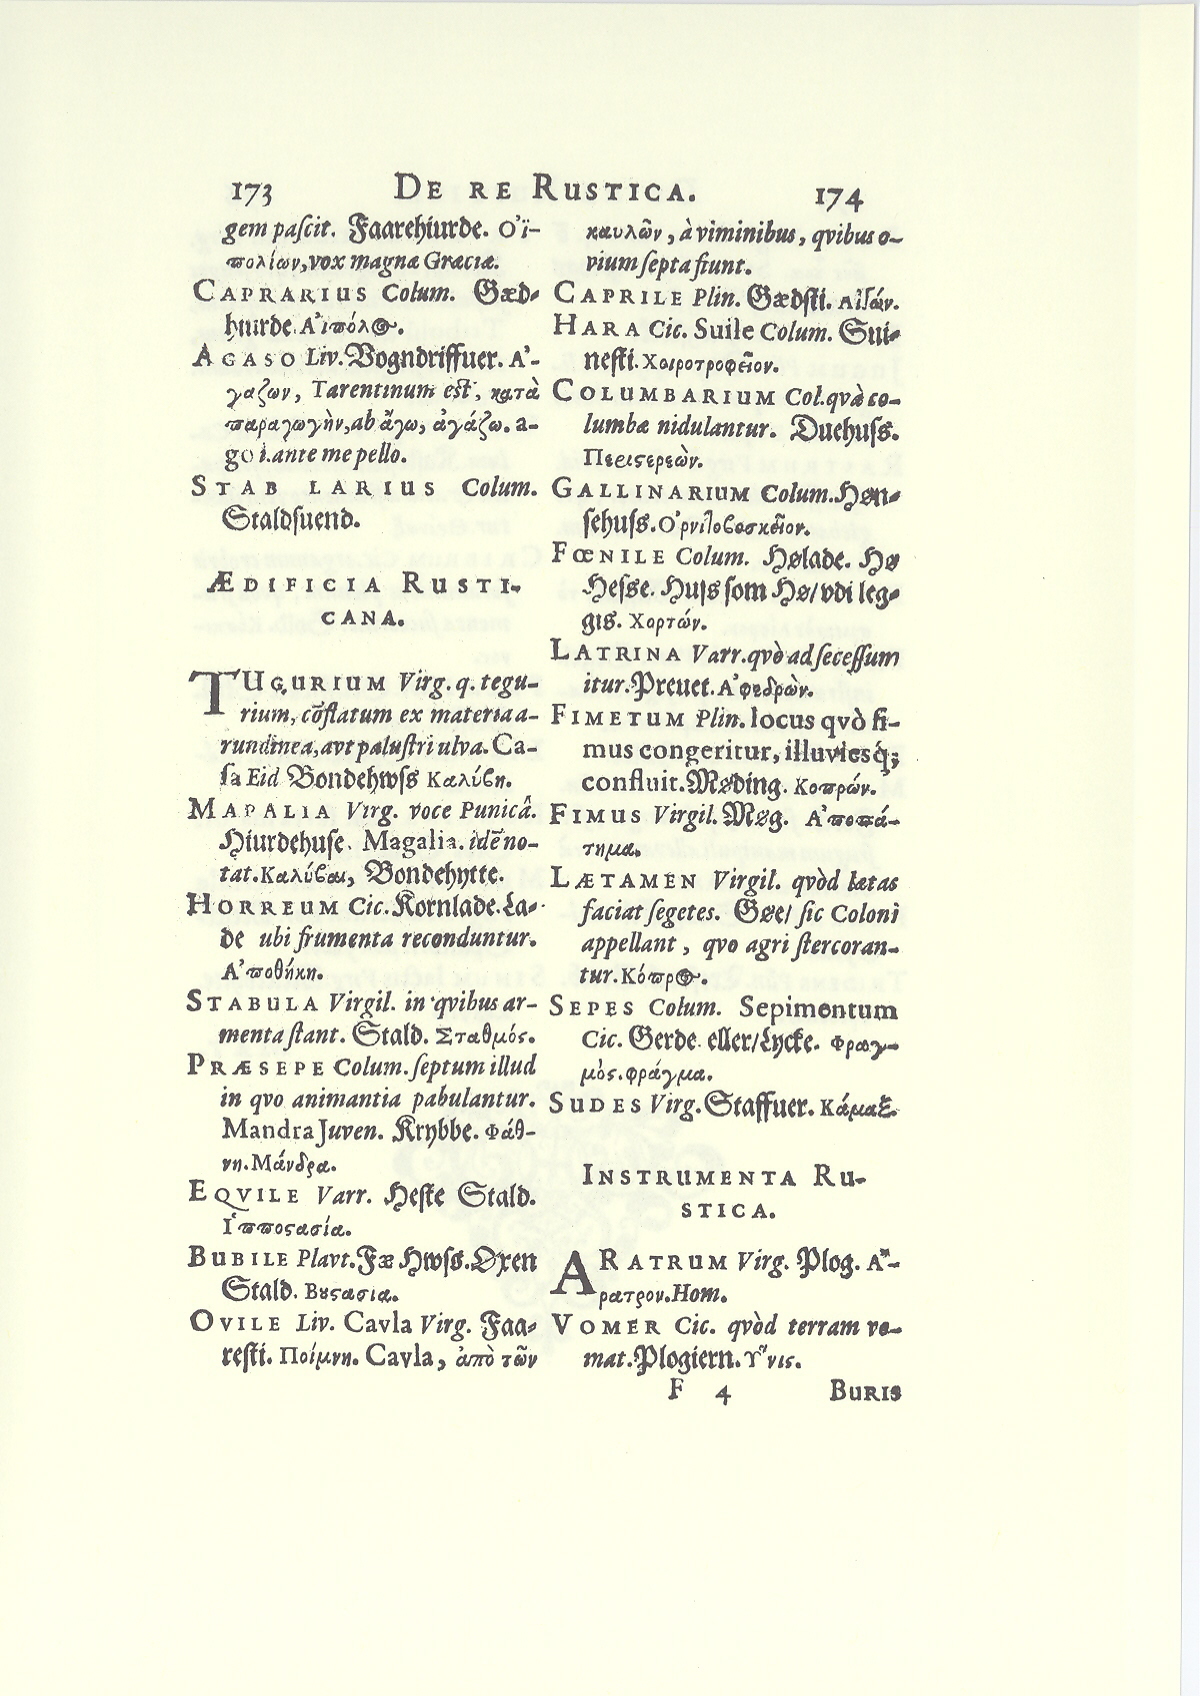 173 DE RE RUSTICA. 174
gem paſcit. Faarehiurde. Ο᾽ϊ-
πολίων, vox magnæ Græciæ.
CAPRARIUS Colum. Gæd-
hiurde. Α᾽ιπόλος.
AGASO Liv. Vogndriffuer. Α᾽-
γαζων, Tarentinum eſt, κατὰ
παραγωγὴν, ab ἄγω, ἀγάζω. a-
go i. ante me pello.
STABLARIUS Colum.
Staldſuend.
ÆDIFICIA RUSTI-
CANA.
TUGURIUM Virg. q. tegu-
rium, cōflatum ex materia a-
rundinea, avt paluſtri ulva. Ca-
ſa Eid Bondehwſs Καλύβη.
MAPALIA Virg. voce Punicâ.
Hiurdehuſe. Magalia. idē no-
tat. Καλύβαι, Bondehytte.
HORREUM Cic. Kornlade. La-
de ubi frumenta reconduntur.
Α᾽ποθήκη.
STABULA Virgil. in qvibus ar-
menta ſtant. Stald. Σταθμός.
PRÆSEPE Colum. ſeptum illud
in qvo animantia pabulantur.
Mandra Juven. Krybbe. Φάθ-
νη. Μάνδρα.
EQVILE Varr. Heſte Stald.
Ι῾πποστασία.
BUBILE Plavt. Fæ Hwſs. Oxen
Stald. Βουστασία.
OVILE Liv. Cavla Virg. Faa-
reſti. Ποίμνη. Cavla, ἀπὸ τῶν
καυλῶν, à viminibus, qvibus o-
vium ſepta fiunt.
CAPRILE Plin. Gædſti. Αἰγών.
HARA Cic. Suile Colum. Sui-
neſti. Χοιροτροφεῖον.
COLUMBARIUM Col. qvà co-
lumbæ nidulantur. Duehuſs.
Περιστερεών.
GALLINARIUM Colum. Høn-
ſehuſs. Ο᾽ρνιθοβοσκεῖον.
FŒNILE Colum. Hølade. Hø
Heſse. Huis ſom Hø/ vdi leg-
gis. Χορτών.
LATRINA Varr. qvò ad ſeceſſum
itur. Preuet. Α᾽φεδρὼν.
FIMETUM Plin. locus qvò fi-
mus congeritur, illuviesq́;
confluit. Møding. Κοπρών.
FIMUS Virgil. Møg. Α᾽ποπά-
τημα.
LÆTAMEN Virgil. qvòd lætas
faciat ſegetes. Gøe/ ſic Coloni
appellant, qvo agri ſtercoran-
tur. Κόπρος.
SEPES Colum. Sepimentum
Cic. Gerde eller/ Lycke. Φραγ-
μὸς. φράγμα.
SUDES Virg. Staffuer. Κάμαξ.
INSTRUMENTA RU-
STICA.
ARATRUM Virg. Plog. Α῎-
ρατρον. Hom.
VOMER Cic. qvòd terram vo-
mat. Plogiern. Υ῞νις.
F 4 BURIS